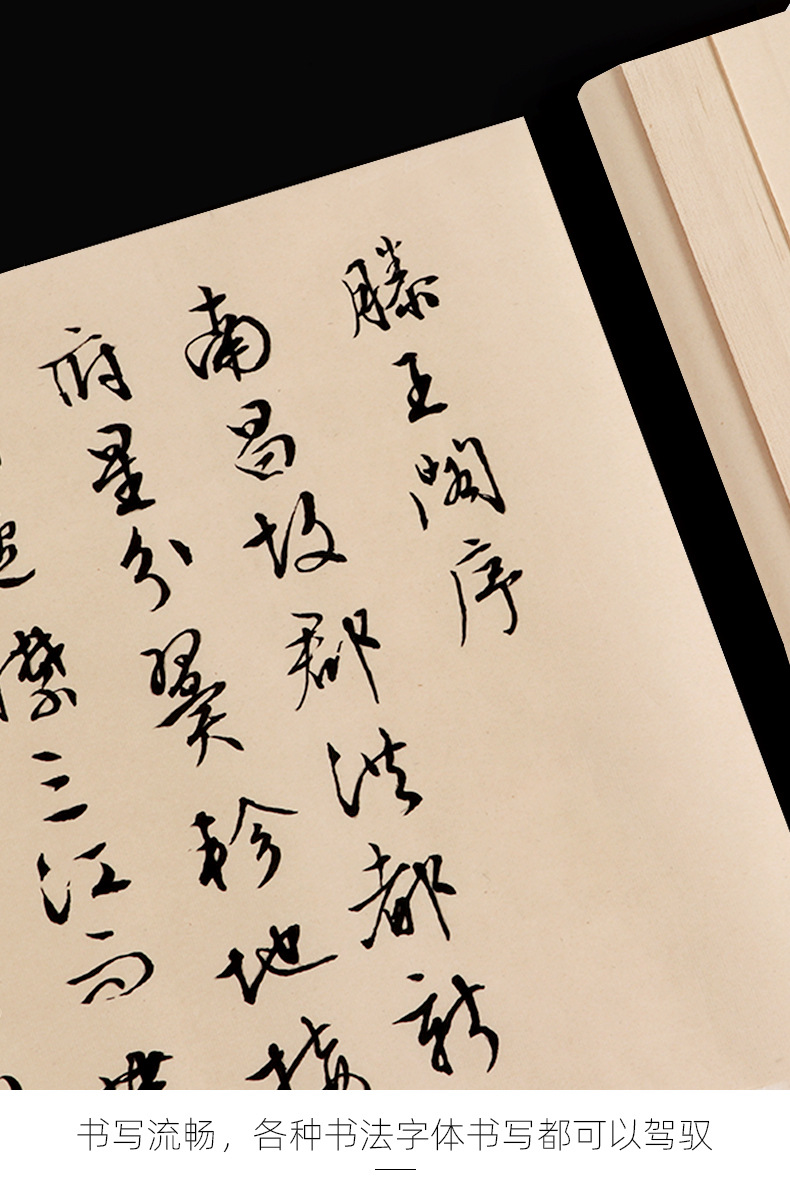 滕王閣序
南昌故郡洪都新
府星分翼軫地接
襟三江而
书写流畅，各种书法字体书写都可以驾驭